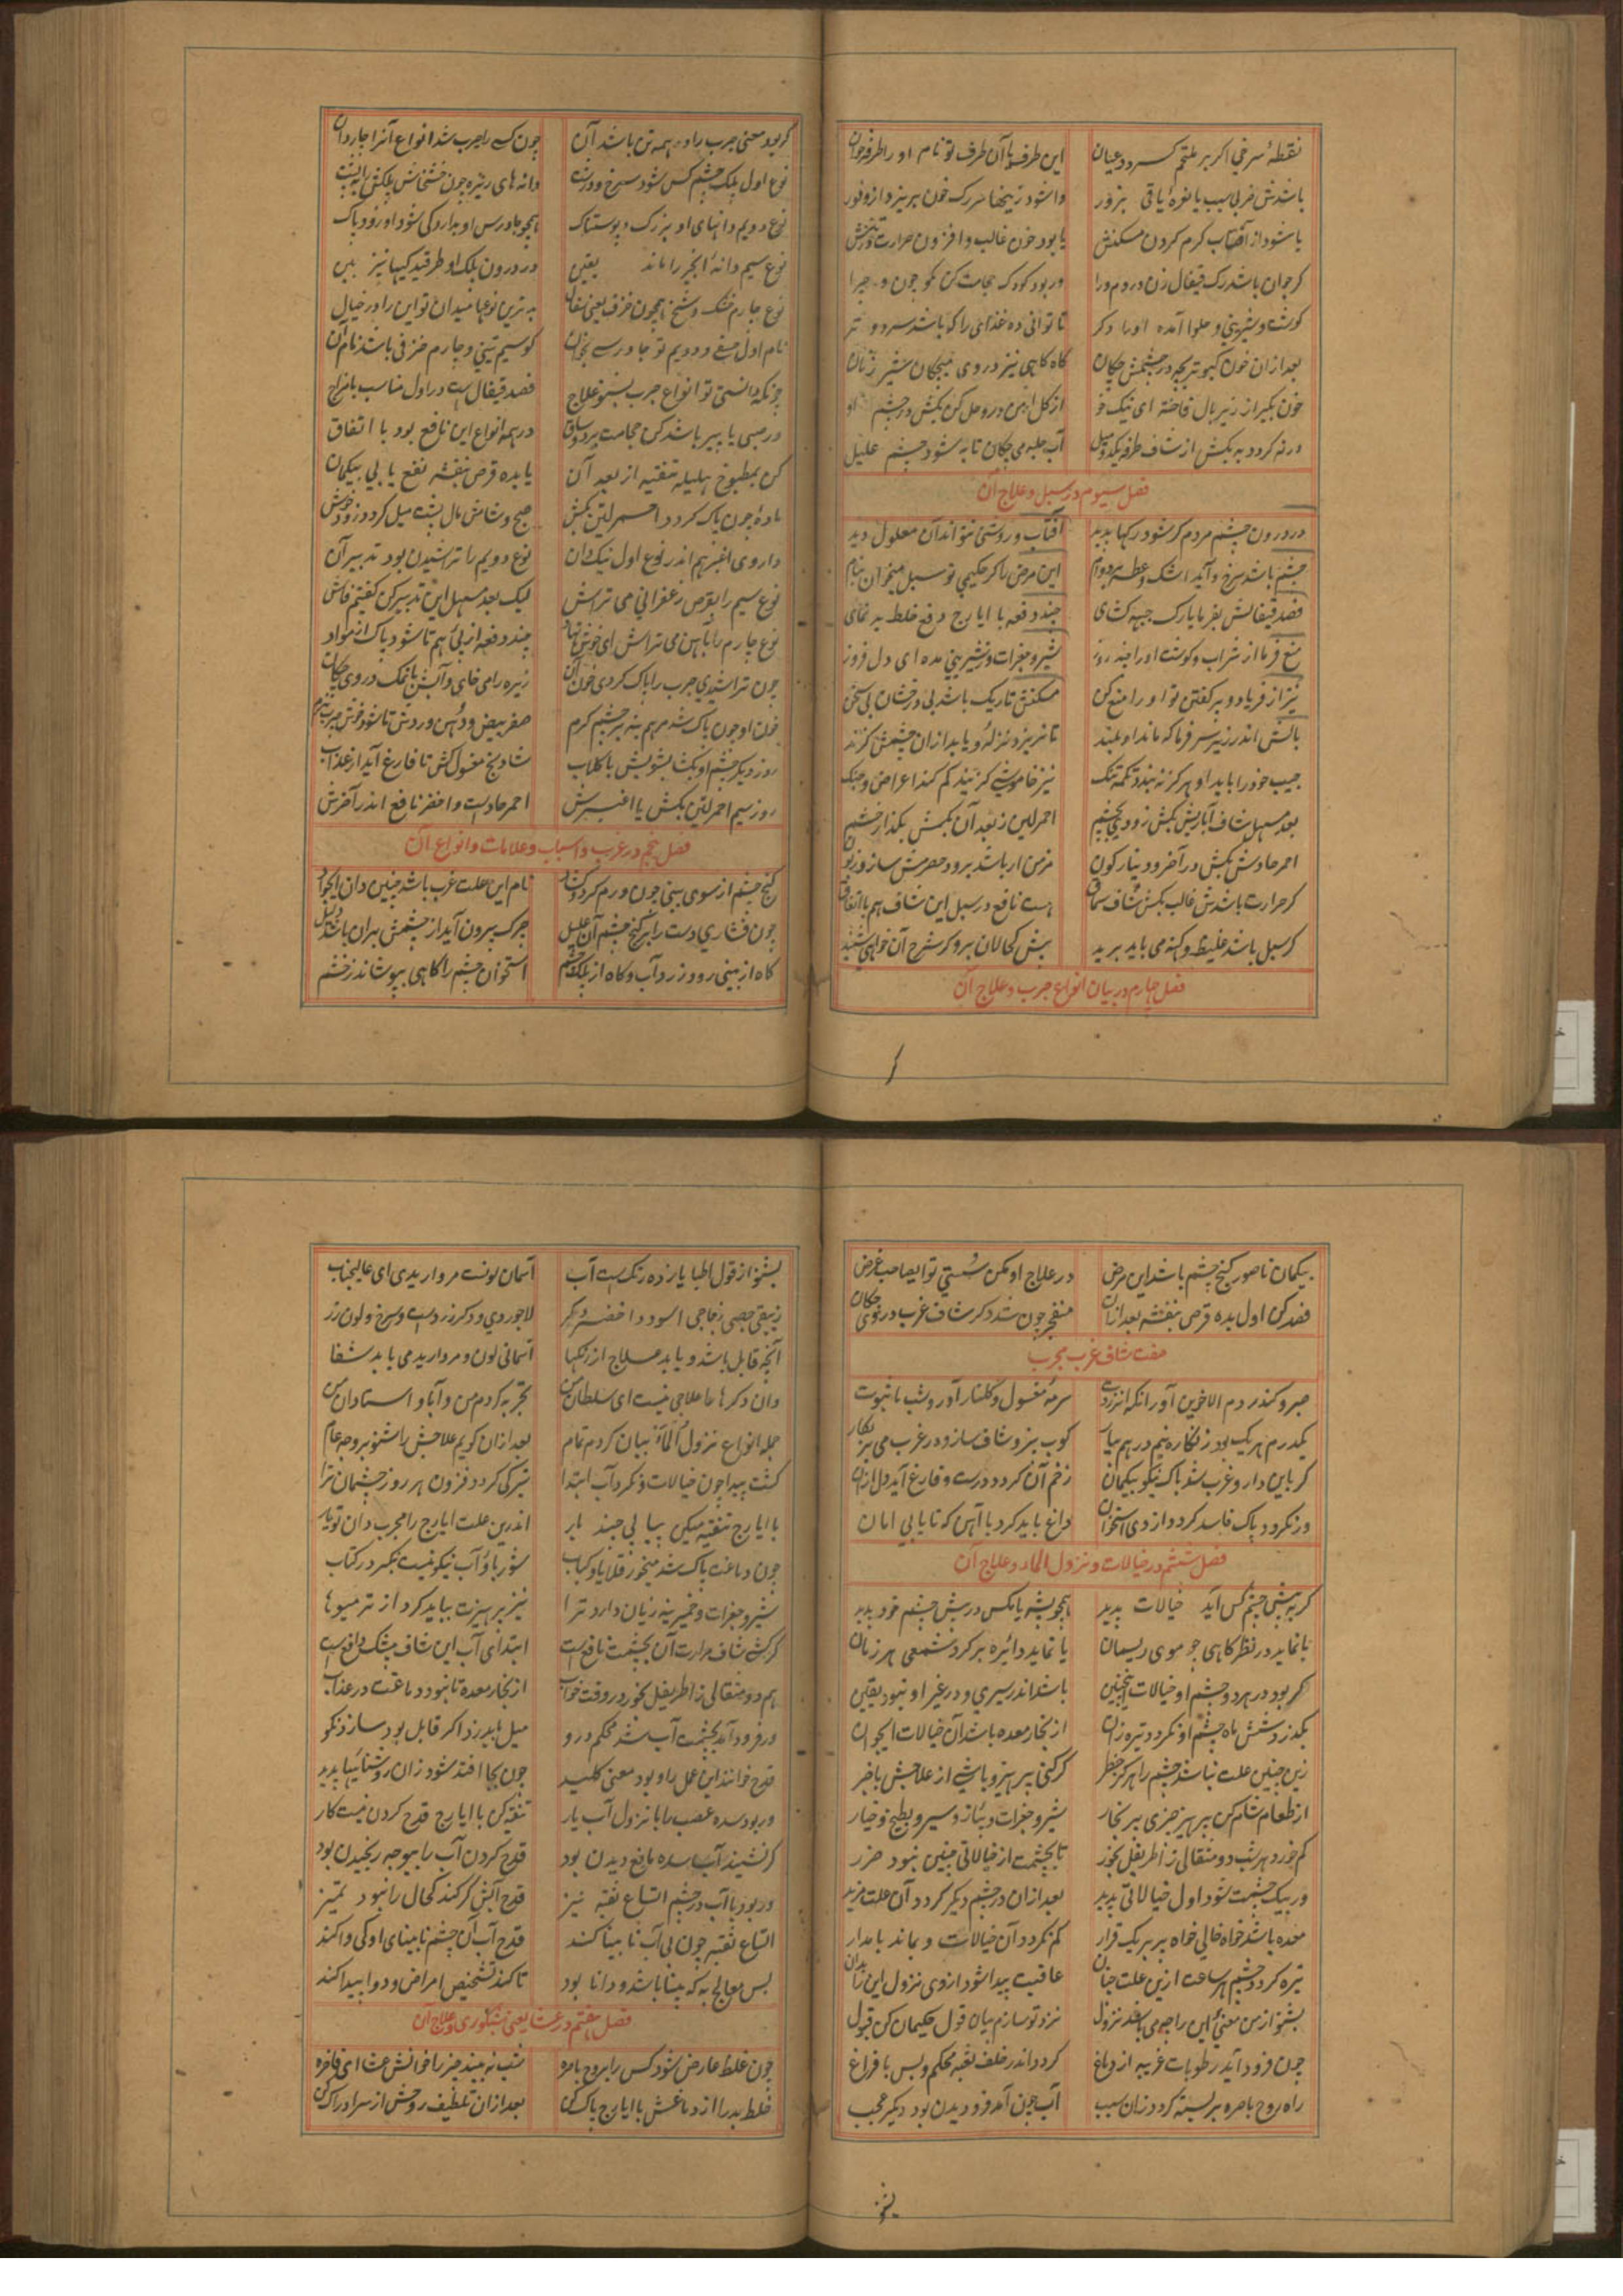 نقطهٔ سرخی اکر بر ملتحم کسردد عیان این طرفه با آن طرف تو نام او را طرفه خوان
باشدش ضربی سبب یا نعره یا قی بزور واشود زینها سر رک خون بریزد از وفور
یا شود از آفتاب کرم کردن مسکنش یا بود خون غالب و افزون حرارت در تنش
کر جوان باشد رک قیفال زن در دم ورا ور بود کودک حجامت کن مکو چون و چرا
کوشت و شیرینی و حلوا آمده او را دکر تا توانی ده غذای را که باشد سرد و تر
بعد از آن خون کبوتر بچه در چشمش چکان کاه کاهی نیز در وی میچکان شیر زنان
خون بکیر از زیر بال فاخته ای نیک خو از کل ارمن در و حل کن بکش در چشم او
ورنه کردد به بکش از شاف طرفه یکدو میل آب حلبه می چکان تا به شود چشم علیل
فصل سیوم در سبل و علاج آن
در درون چشم مردم کر شود رکها پدید آفتاب و روشنی نتواند آن معلول دید
چشم باشد سرخ و آید اشک و عطسه بر دوام این مرض را کر حکیمی تو سبل میخوان بنام
فصد قیفالش بفرما یا رک جبهه کشای چند دفعه با ایارج دفع خلط به نمای
منع فرما از شراب و کوشت او را چند روز شیر و جغرات و شیرینی مده ای دل فروز
نیز از فریاد و پر کفتن تو او را منع کن مسکنش تاریک باشد بی درخشان بی سخن
بالش اندر زیر سر فرما که ماند او بلند تا نریزد نزله و یابد از آن چشمش کزند
جیب خود را باید او هرکز نه بندد تکمه تنک نیز خاموشی کزیند کم کند اعراض و جنک
بعد مسهل شاف آباریش بکش زود بچشم احمر لین ز بعد آن بکمش بکذار خشم
احمر حادش بکش در آخر و دینار کون مزمن ار باشد برود حصرمش سازد زبون
کر حرارت باشدش غالب بکش شاف سماق هست نافع در سبل این شاف هم با اتفاق
کر سبل باشد غلیظ و کهنه می باید برید پیش کحالان برو کر شرح آن خواهی شنید
فصل چهارم در بیان انواع جرب و علاج آن
کر بود معنی جرب را در همه تن باشد آن چون کسی را جرب شد انواع آنرا چار دان
نوع اول پلک چشم کس شود سرخ و درشت دانه های ریزه چون خشخاش پلکش را به پشت
نوع دویم دانهای او بزرک و پوستناک همچو جاورس او بدارد کی شود او زود پاک
نوع سیم دانهٔ انجیر را ماند یقین در درون پلک او طرقیدکیها نیز بین
نوع چارم خشک و شخ همچون خزف یعنی سفال بدترین نوعها میدان تو این را در خیال
نام اول و دویم تو جاورسی بخوان کو سیم تینی و چارم خزفی باشد نام آن
چونکه دانستی تو انواع جرب بشنو علاج فصد قیفال است در اول مناسب با مزاج
ور صبی یا پیر باشد کن حجامت بر دو ساق در همه انواع این نافع بود با اتفاق
کن بمطبوخ هلیله تنقیه از بعد آن یا بده قرص بنفشه نفع یابی بیکمان
ماده چون پاک کردد احمر لین بکش صبح و شامش مال پشت میل کردد زود خوش
داروی اغبر هم اندر نوع اول نیک دان نوع دویم را تراشیدن بود تدبیر آن
نوع سیم را بقرص زعفرانی می تراش لیک بعد مسهل این تدبیر کن کفتیم فاش
نوع چارم را بآهن می تراش ای خوش نهاد چند دفعه از پی هم تا شود پاک از مواد
چون تراشیدی جرب را پاک کردی خون آن زیره را می خای و آبش با نمک در وی چکان
خون او چون پاک شد مرهم بنه بر چشم کرم صفر بیض و دهن وردش تا شود خوش جرب نرم
روز دیکر چشم او بکشا بشویش با کلاب شادنج مغسول کش تا فارغ آید از عذاب
روز سیم احمر لین بکش یا اغبرش احمر حاد است و اخضر نافع اندر آخرش
فصل پنجم در غرب و اسباب و علامات و انواع آن
کنج چشم از سوی بینی چون ورم کرد نام این علت غرب باشد چنین دان
چون فشاری دست را بر کنج چشم آن علیل چرک بیرون آید از چشمش بر آن باشد دلیل
کاه از بینی رود زرد آب و کاه از پلک چشم استخوان چشم را کاهی بپوشاند ز خشم
بیکمان ناصور کنج چشم باشد این مرض در علاج او مکن سستی تو ایصاحب غرض
فصد کن اول بده قرص بنفشه بعد از آن منفجر چون شد دکر شاف غرب در وی چکان
صفت شاف غرب مجرب
صبر و کندر دم الاخوین آور انکه انزروت سرمهٔ مغسول و کلنار آور و شب با ثبوت
یکدرم هر یک بود زنکاره نیم درهم بیار کوب بیز و شاف ساز و در غرب می بر بکار
کر باین دارو غرب شد پاک نیکو بیکمان زخم آن کردد درست و فارغ آید دل از آن
ور نکردد پاک فاسد کردد از وی استخوان داغ باید کرد با آهن که تا یابی امان
فصل ششم در خیالات و نزول الماء و علاج آن
کر به پیش چشم کس آید خیالات پدید همچو پشه یا مکس در پیش چشم خود بدید
یا نماید در نظر کاهی چو موی ریسمان یا نماید دائره بر کرد شمعی هر زمان
کر بود در هر دو چشم او خیالات اینچنین باشد اندر سیری و در غیر او نبود یقین
بکذرد شش ماه چشم او نکردد تیره زان از بخار معده باشد آن خیالات
زین چنین علت نباشد چشم را هرکز خطر کر کنی پرهیز و باشی از علاجش باخبر
از طعام شام کن پرهیز چیزی پر بخار شیر و جغرات و پیاز و سیر و بطیخ و خیار
کم خور و هر شب دو مثقالی ز اطریفل بخور تا بچشمت از خیالاتی چنین نبود ضرر
ور بیک چشمت شود اول خیالاتی پدید بعد از آن در چشم دیکر کردد آن علت مزید
معده باشد خواه خالی خواه پر بر یک قرار کم نکردد آن خیالات و بماند پایدار
تیره کردد چشم هر ساعت از این علت عاقبت پیدا شود از وی نزول این را بدان
بشنو از من معنیٔ این را چه می باشد نزول نزد تو سازم بیان قول حکیمان کن قبول
چون فرود آید رطوبات غریبه از دماغ کردد اندر خلف ثقبه محکم و بس با فراغ
راه روح باصره بر بسته کردد زان سبب آب چون آمد فرو دیدن بود دیکر عجب
بشنو از قول اطبا یازده رنک است آب آسمان کونست مرواریدی ای عالیجناب
زیبقی جصی زجاجی اسود و اخضر لاجوردی و دکر زرد است و سرخ و لون زر
آنچه قابل باشد و یابد علاج از رنکها آسمانی لون و مرواریدی می یابد شفا
وان دکرها را علاجی نیست ای سلطان من تجربه کردم من و آبا و استادان من
جمله انواع نزول الماء بیان کردم تمام بعد از آن کویم علاجش را شنو بر وجه عام
کشت پیدا چون خیالات و نکرد آب ابتدا تیرکی کردد فزون هر روز چشمان ترا
با ایارج تنقیه میکن پیاپی چند بار اندرین علت ایارج را مجرب دان تو یار
چون دماغت پاک شد میخور قلایا و کباب شوربا و آب نیکو نیست بنکر در کتاب
شیر و جغرات و خمیرینه زیان دارد ترا نیز پرهیزت بباید کرد از تر میوها
کر کشی شاف مرارت آن بچشمت نافع است ابتدای آب این شاف بیشک دافع است
هم دو مثقالی ز اطریفل بخور در وقت خواب از بخار معده تا نبود دماغت در عذاب
ور فرود آمد بچشمت آب شد محکم درو میل باید زد اکر قابل بود سازد نکو
قدح خوانند این عمل را و بود معنی کلید چون بجا افتد شود زان روشنائیها پدید
ور بود سده عصب را با نزول آب یار تنقیه کن با ایارج قدح کردن نیست کار
کر نشیند آب سده مانع دیدن بود قدح کردن آب را بیوجه رنجیدن بود
ور بود با آب در چشم اتساع ثقبه نیز قدح آبش کر کند کحال را نبود تمیز
اتساع ثقبه چون بی آب نابینا کند قدح آب آن چشم نابینای او کی وا کند
پس معالج به که بینا باشد و دانا بود تا کند تشخیص امراض و دوا پیدا کند
فصل هفتم در عشا یعنی شبکوری و علاج آن
چون غلظ عارض شود کس را بروح باصره شب نه بیند چیز را خوانش عشا ای فاخره
خلط بد را از دماغش با ایارج پاک کن بعد از آن تلطیف روحش از سر ادراک کن